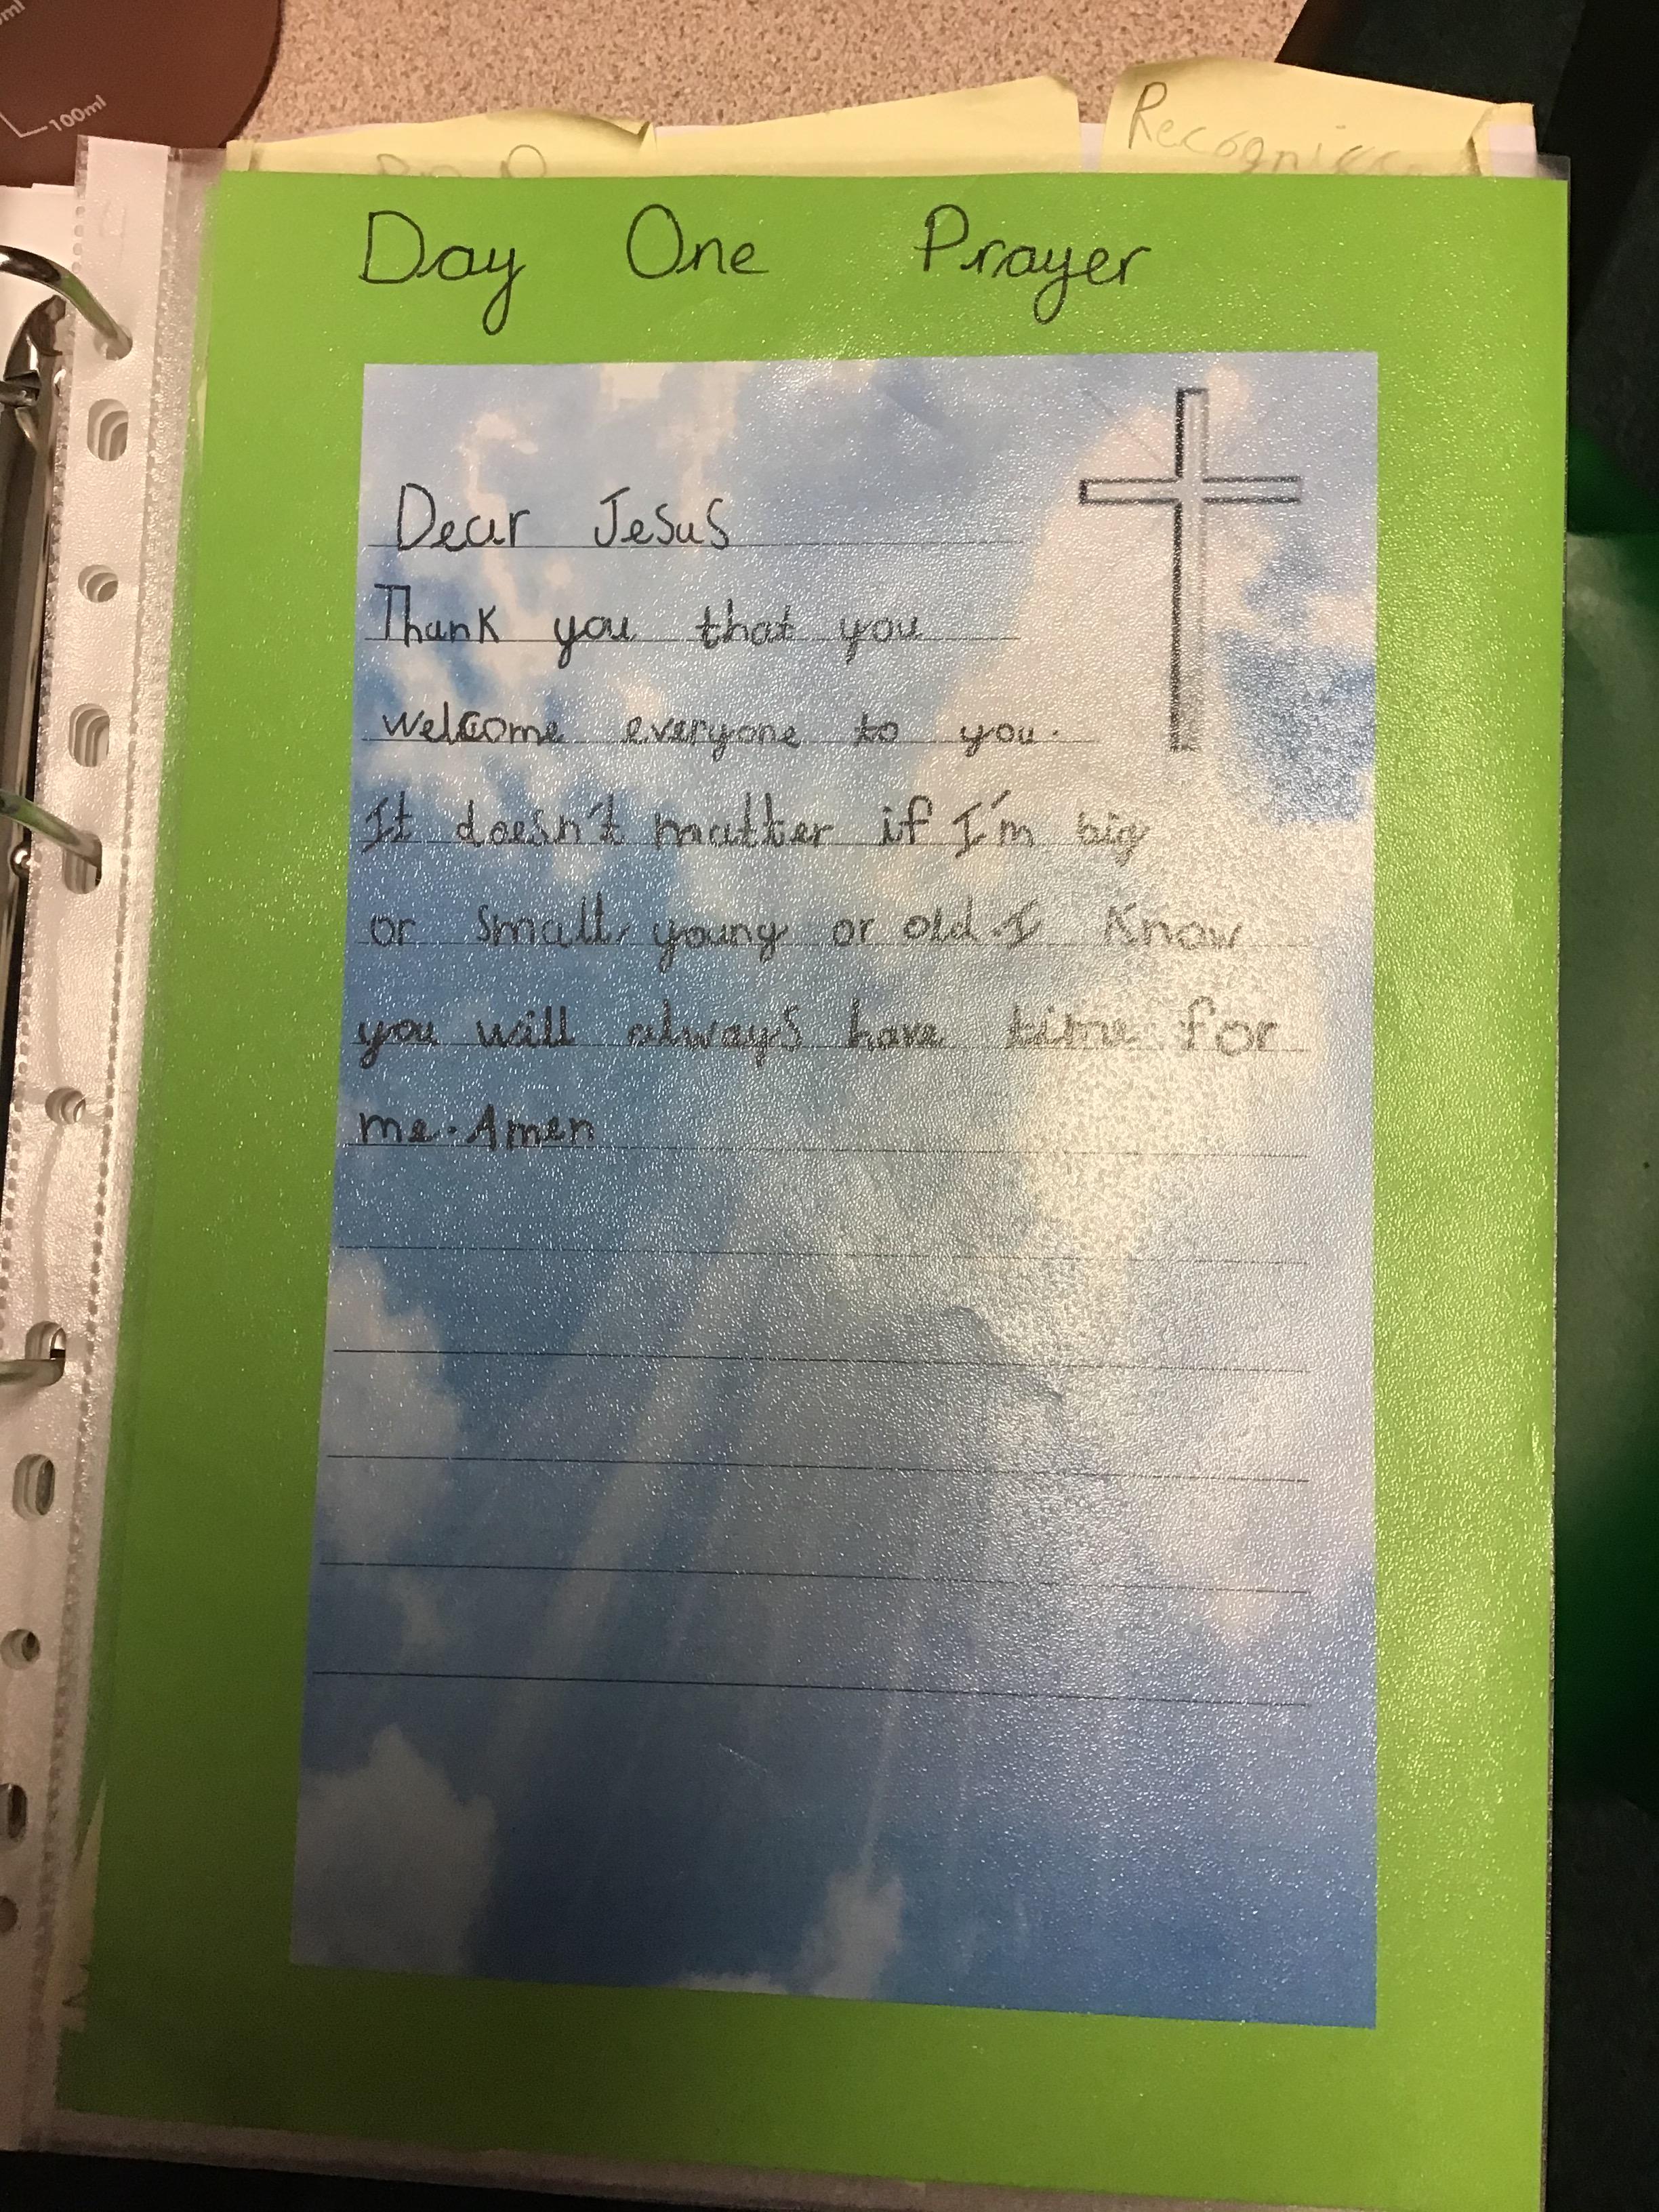 100ml
Recognise
Day One Prayer
Dear Jesus
Thank you that you
welcome everyone to you.
It doesn't matter if I'm big
or small, young or old I know
you will always have time for
me. Amen